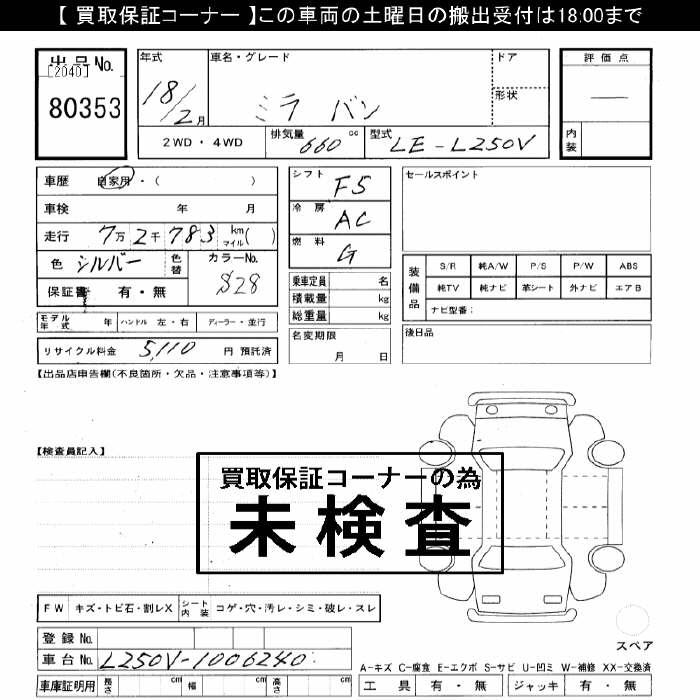 【 買取保証コーナー 】この車両の土曜日の搬出受付は18:00まで
出品No.
[2040]
80353
年式
18/2月
車名・グレード
ミラ バン
ドア
形状
評価点
―
内装
2WD・4WD
排気量 660 cc
型式 LE-L250V
車歴 自家用・( )
車検 年 月
走行 7万2千783 km マイル( )
色 シルバー 色替
カラーNo. S28
保証書 有・無
シフト F5
冷房 AC
燃料 G
乗車定員 名
積載量 kg
総重量 kg
セールスポイント
装備品
S/R 純A/W P/S P/W ABS
純TV 純ナビ 革シート 外ナビ エアB
ナビ型番:
モデル年式 年 ハンドル 左・右 ディーラー・並行
リサイクル料金 5,110 円 預託済
名変期限
月 日
後日品
【出品店申告欄(不良箇所・欠品・注意事項等)】
【検査員記入】
買取保証コーナーの為
未検査
FW キズ・トビ石・割レX シート内装 コゲ・穴・汚レ・シミ・破レ・スレ
登録No.
車台No. L250V-1006240
車庫証明用 長さ cm 幅 cm 高さ cm
スペア
A-キズ C-腐食 E-エクボ S-サビ U-凹ミ W-補修 XX-交換済
工具 有・無 ジャッキ 有・無